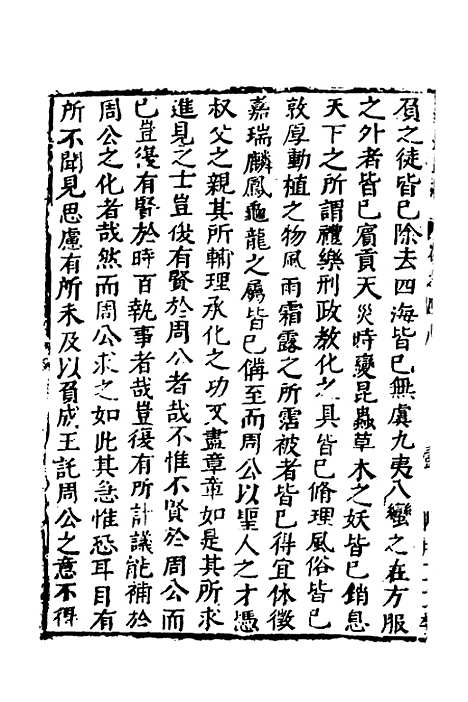 負之徒皆已除去四海皆已無虞九夷八蠻之在方服
之外者皆已賓貢天災時變昆蟲草木之妖皆已銷息
天下之所謂禮樂刑政教化之具皆已脩理風俗皆已
敦厚動植之物風雨霜露之所霑被者皆已得宜休徵
嘉瑞麟鳳龜龍之屬皆已備至而周公以聖人之才憑
叔父之親其所輔理承化之功又盡章章如是其所求
進見之士豈復有賢於周公者哉不惟不賢於周公而
已豈復有賢於時百執事者哉豈復有所計議能補於
周公之化者哉然而周公求之如此其急惟恐耳目有
所不聞見思慮有所未及以負成王託周公之意不得